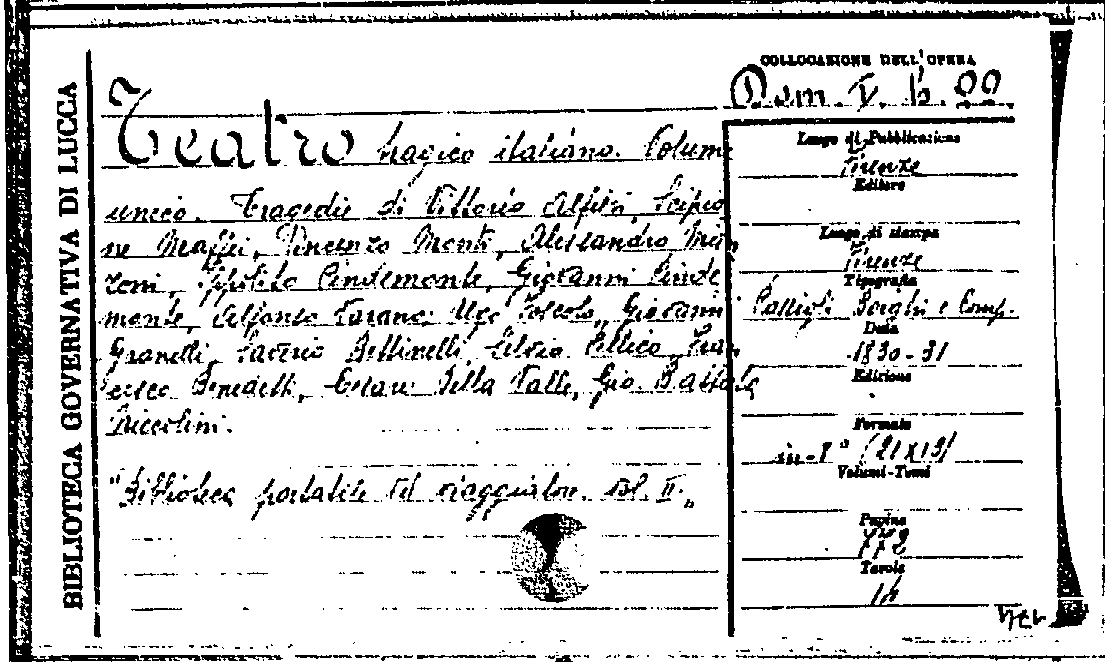 BIBLIOTECA GOVERNATIVA DI LUCCA
COLLOCAZIONE DELL'OPERA
Teatro tragico italiano. Volume
unico. Tragedie di Vittorio Alfieri, Scipio
ne Maffei, Vincenzo Monti, Alessandro Man
zoni, Ippolito Pindemonte, Giovanni Pinde
monte, Alfonso Varano, Ugo Foscolo, Giovanni
Granelli, Saverio Bettinelli, Silvio Pellico, Fran
cesco Benedetti, Cesare Della Valle, Gio. Battista
Niccolini.
"Biblioteca portatile del viaggiatore. Vol. II."
Luogo di Pubblicazione
Firenze
Editore
Luogo di stampa
Firenze
Tipografia
Passigli Borghi e Comp.
Data
1830-31
Edizione
Formato
in-8° (21x13)
Volumi-Tomi
Pagine
772
Tavole